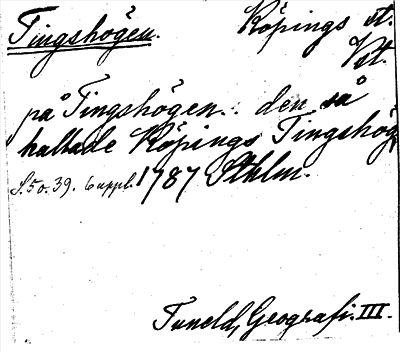 Tingshögen. Köpings st.
Vst.
på Tingshögen. den så
kallade Köpings Tingshög
S. 50. 39. 6 uppl. 1787 Sthlm.
Tuneld, Geografi. III.